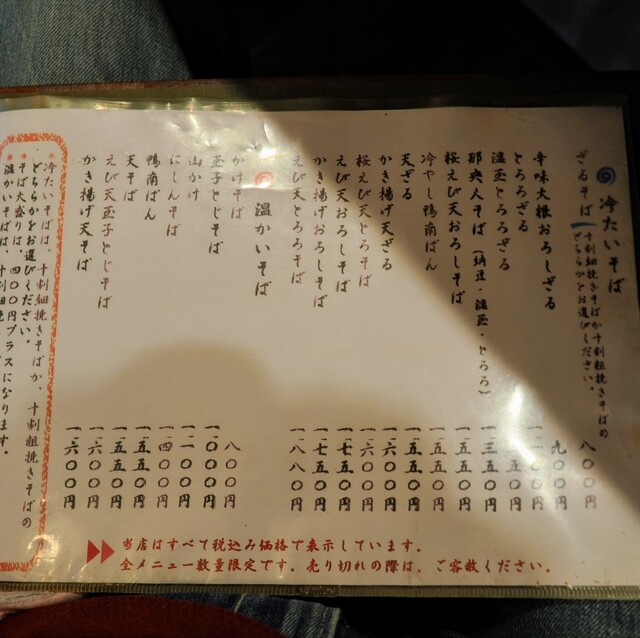 冷たいそば
ざるそば 八〇〇円
十割細挽きそばか十割粗挽きそばの
どちらかをお選びください。
辛味大根おろしざる 九〇〇円
とろろざる
温玉とろろざる
那央人そば（納豆・温玉・とろろ） 一、三五〇円
桜えび天おろしそば 一、五五〇円
冷やし鴨南ばん 一、五五〇円
天ざる 一、五五〇円
かき揚げ天ざる 一、六〇〇円
桜えび天とろそば 一、六〇〇円
えび天おろしそば 一、七五〇円
かき揚げおろしそば 一、七五〇円
えび天とろろそば 一、八八〇円
温かいそば
かけそば 八〇〇円
玉子とじそば 一、〇〇〇円
山かけ 一、一〇〇円
にしんそば 一、四〇〇円
鴨南ばん 一、五五〇円
天そば 一、五五〇円
えび天玉子とじそば 一、六〇〇円
かき揚げ天そば 一、六〇〇円
冷たいそばは、十割細挽きそばか、十割粗挽きそばの
どちらかをお選びください。
そば大盛りは、四〇〇円プラスになります。
温かいそばは、十割細挽
当店はすべて税込み価格で表示しています。
全メニュー数量限定です。売り切れの際は、ご容赦ください。